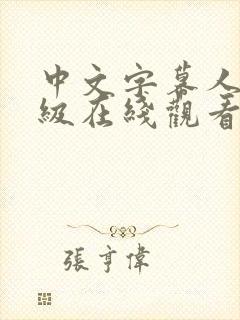 中文字幕人
級在綫觀看
張亨偉